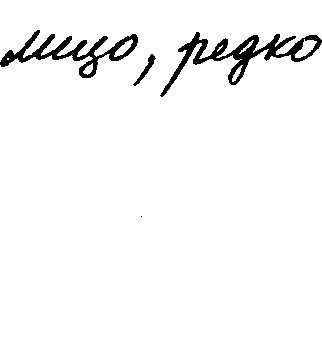 лицо, редко